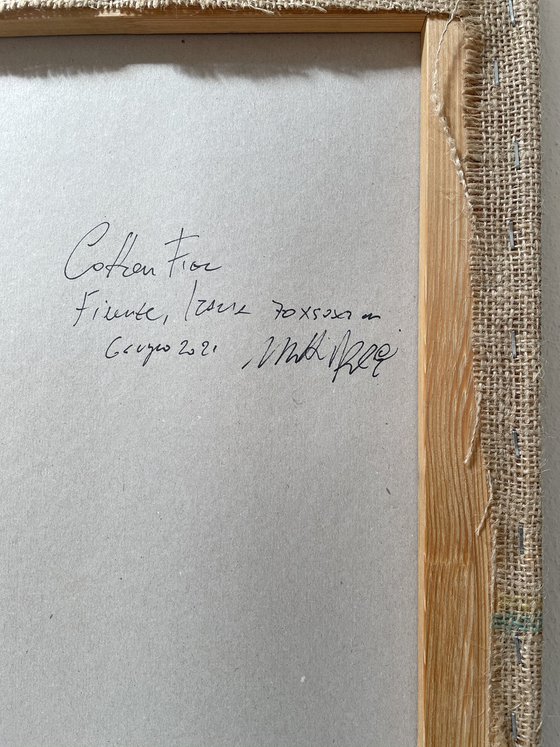 Cotton Fior
Firenze, Italia 70x50x2 cm
Giugno 2021